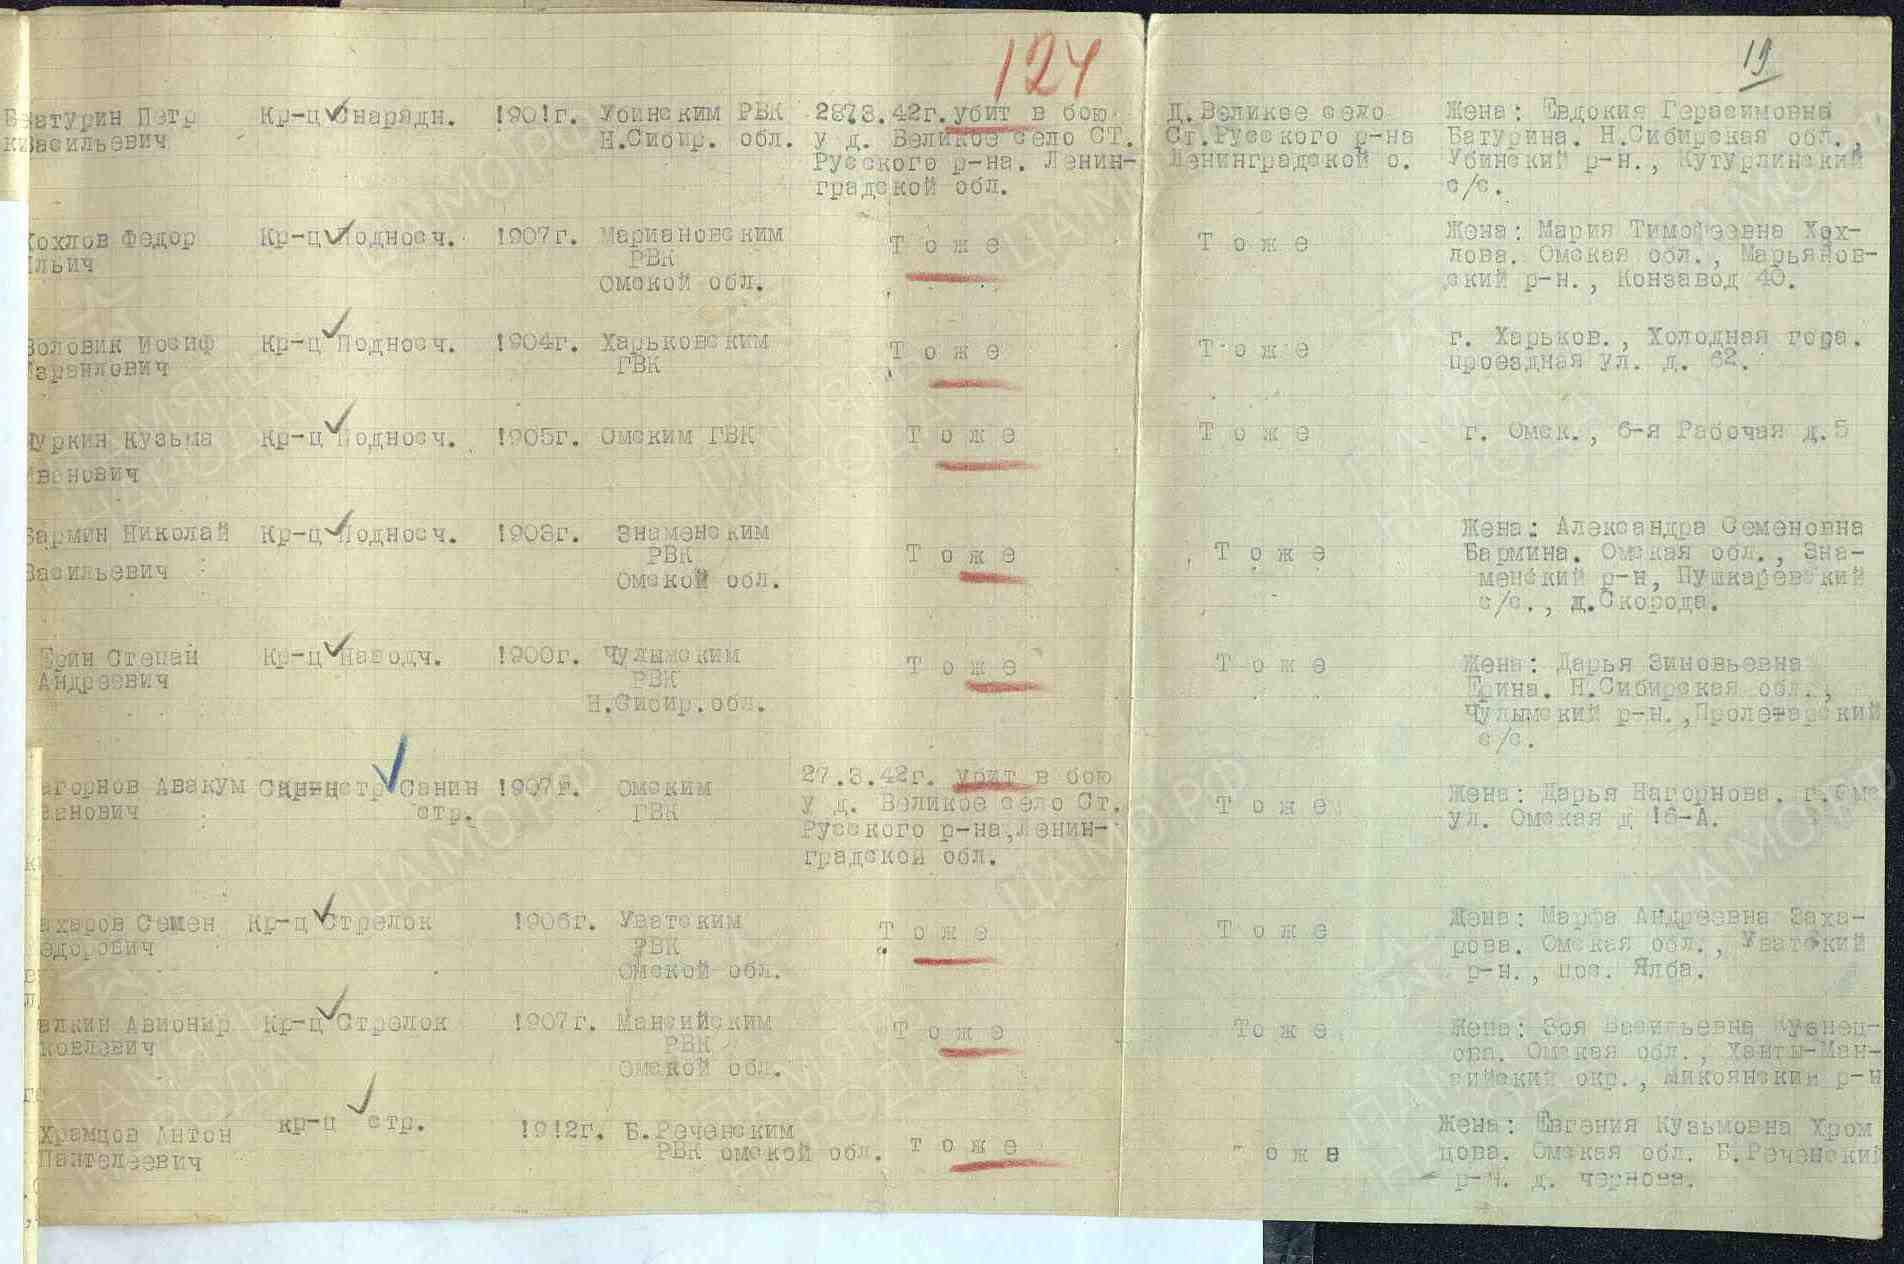 124
19
Батурин Петр Кр-ц Снарядн. 1901г. Убинским РВК 2873.42г. убит в бою Д. Великое село Жена: Евдокия Герасимовна
Васильевич Н.Сибир. обл. у д. Великое село СТ. Ст.Русского р-на Батурина. Н.Сибирская обл.,
Русского р-на. Ленин- Ленинградской о. Убинский р-н., Кутурлинский
градской обл. с/с.
Хохлов Федор Кр-ц Подносч. 1907г. Мариановским Тоже Тоже Жена: Мария Тимофеевна Хох-
Ильич РВК лова. Омская обл., Марьянов-
Омской обл. ский р-н., Конзавод 40.
Воловик Иосиф Кр-ц Подносч. 1904г. Харьковским Тоже Тоже г. Харьков., Холодная гора.
Израилович ГВК проездная ул. д. 62.
Чуркин Кузьма Кр-ц Подносч. 1905г. Омским ГВК Тоже Тоже г. Омск., 6-я Рабочая д.5
Иванович
Бармин Николай Кр-ц Подносч. 1903г. Знаменским Тоже Тоже Жена: Александра Семеновна
Васильевич РВК Бармина. Омская обл., Зна-
Омской обл. менский р-н, Пушкаревский
с/с., д.Скорода.
Ерин Степан Кр-ц Наводч. 1900г. Чулымским Тоже Тоже Жена: Дарья Зиновьевна
Андреевич РВК Ерина. Н.Сибирская обл.,
Н.Сибир.обл. Чулымский р-н.,Пролетарский
с/с.
агорнов Авакум Санинстр Санин 1907г. Омским 27.3.42г. убит в бою Тоже Жена: Дарья Нагорнова. г.
ванович стр. ГВК у д. Великое село Ст. ул. Омская д 16-А.
Русского р-на,Ленин-
градской обл.
ахаров Семен Кр-ц Стрелок 1906г. Уватским Тоже Тоже Жена: Марфа Андреевна Заха-
едорович РВК рова. Омская обл., Уватский
Омской обл. р-н., пос. Ялба.
Авионир Кр-ц Стрелок 1907г. Мансийским Тоже Тоже Жена: Зоя Васильевна Кузнец-
ковлевич РВК ова. Омская обл., Ханты-Ман-
Омской обл. сийский окр., Микоянский р-н
Храмцов Антон кр-ц стр. 1912г. Б.Реченским тоже оже Жена: Евгения Кузьмовна Хром
Пантелеевич РВК омской обл. цова. Омская обл. Б.Реченский
р-н. д. чернова.